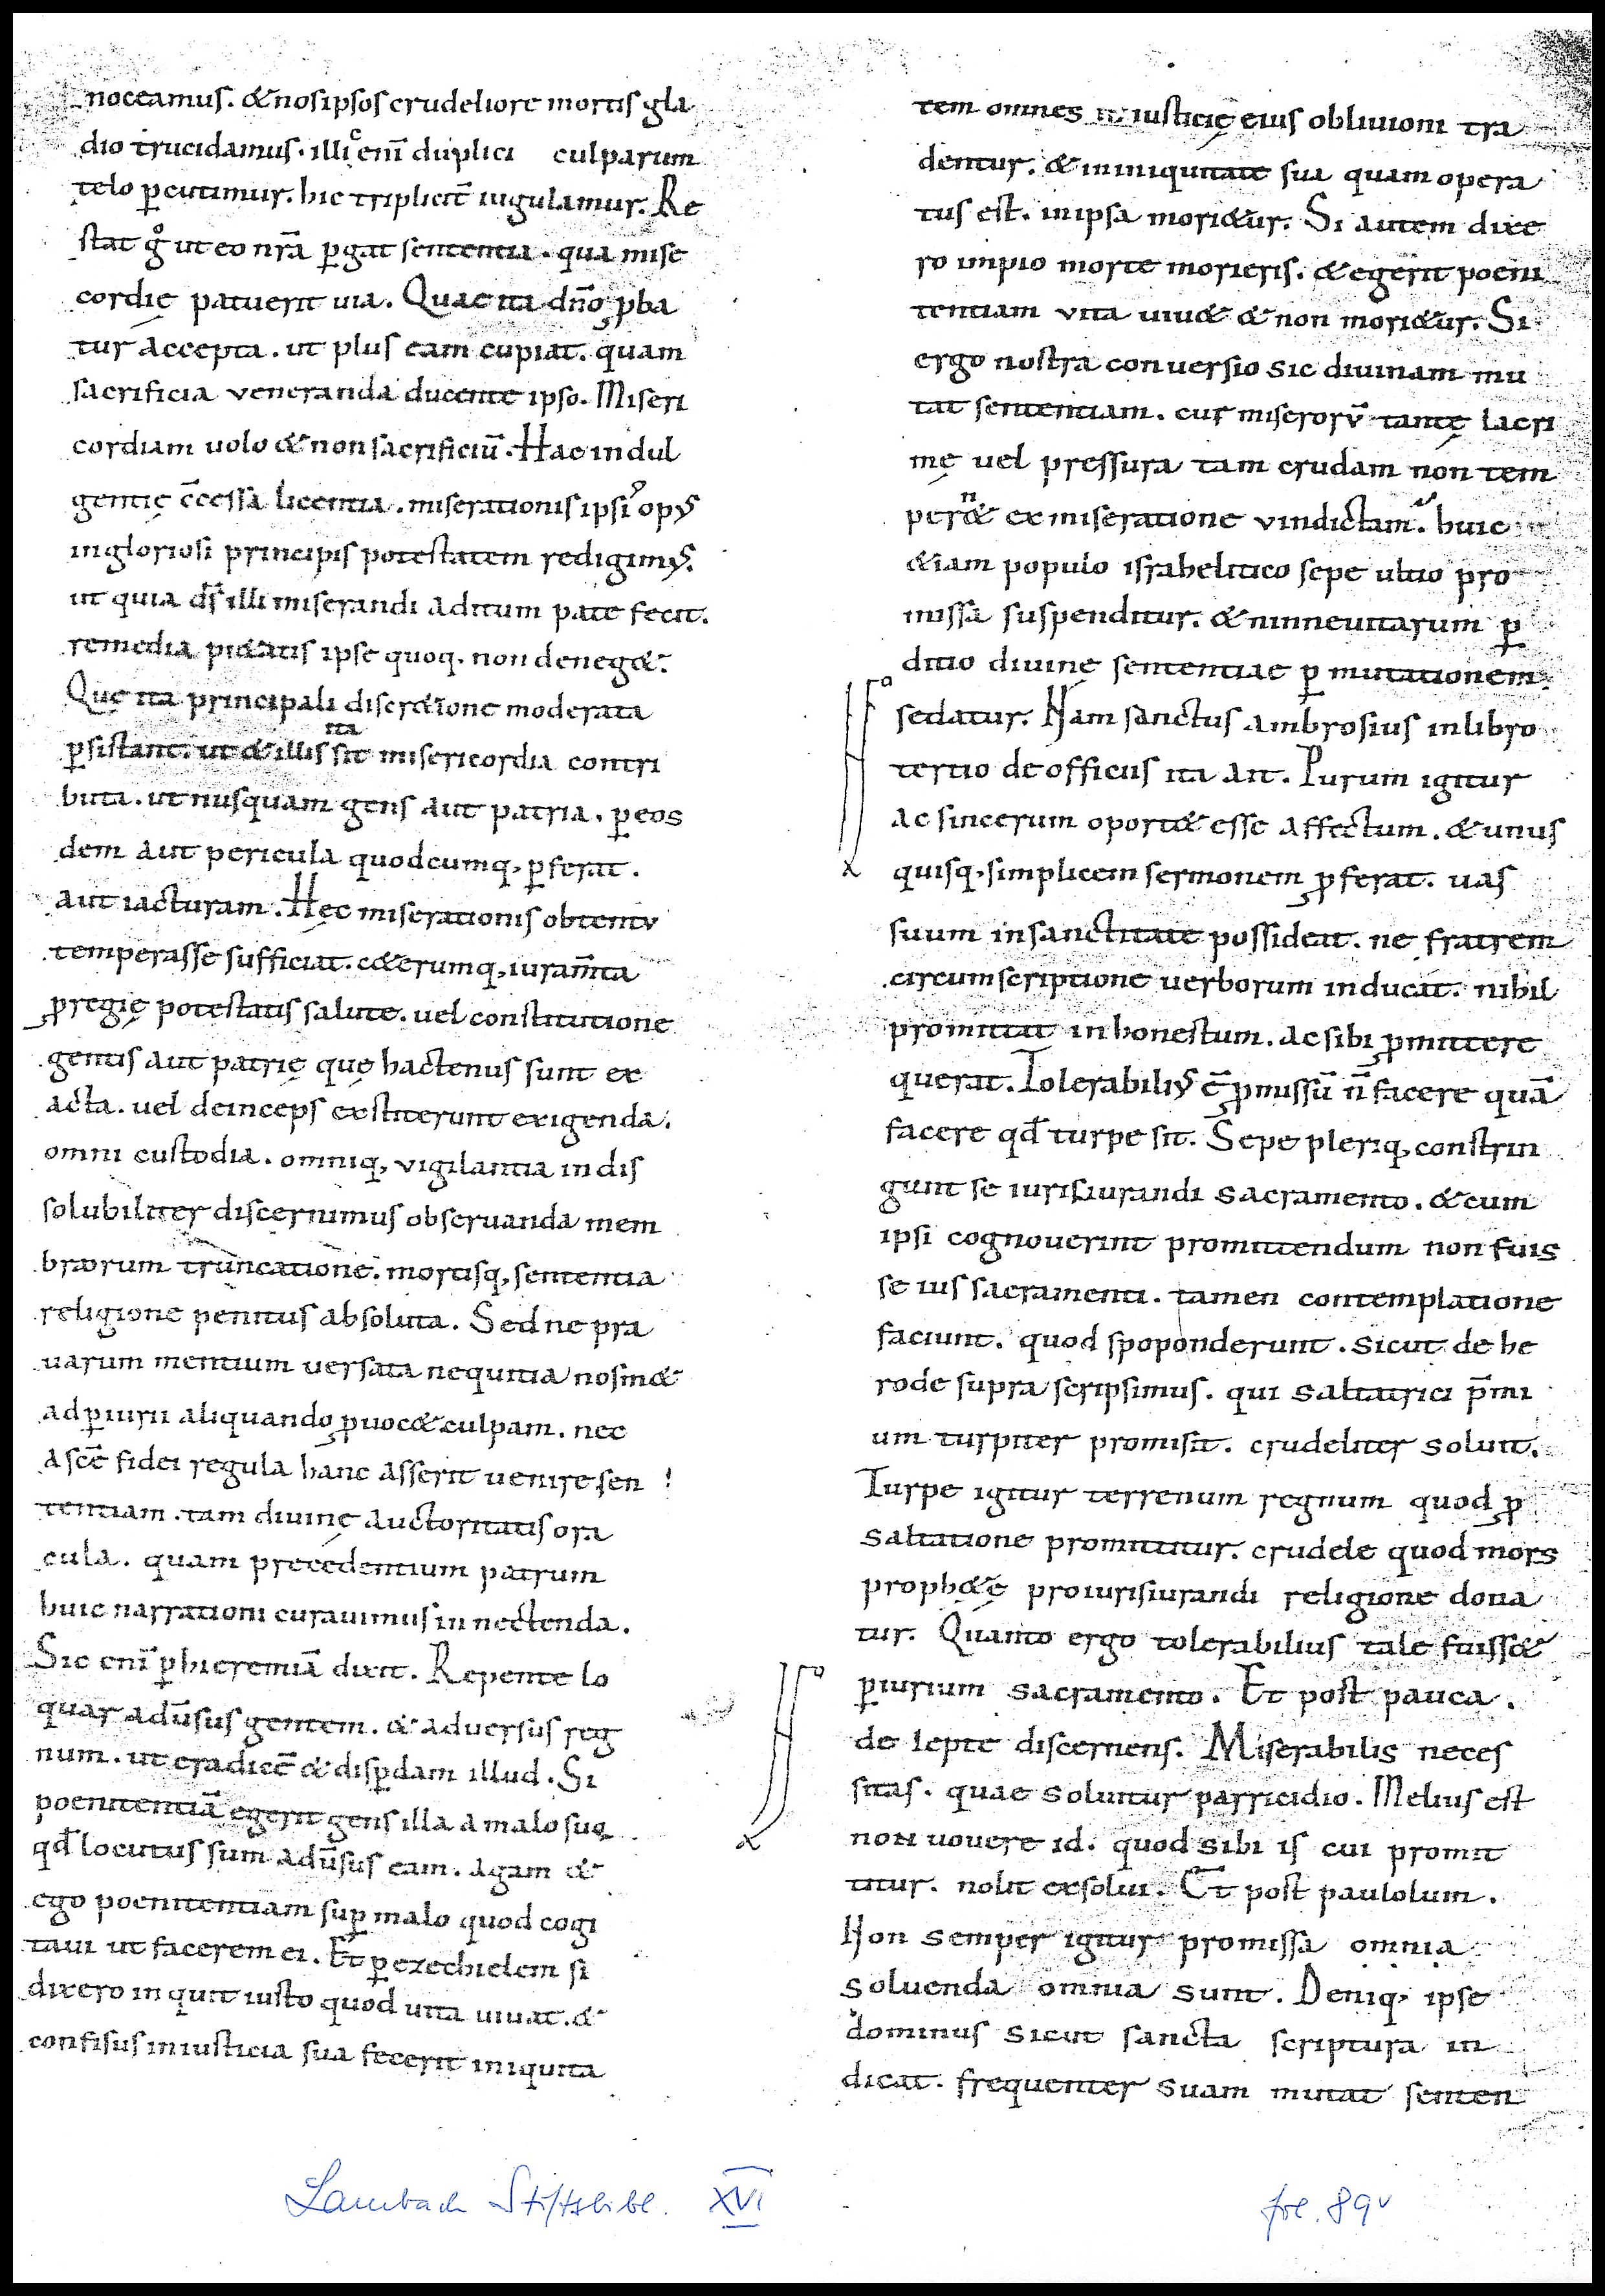 noceamus. & nosipsos crudeliore mortis gla
dio trucidamus. illic enī duplici culparum
telo ꝑcutimur. hic triplicit̄ iugulamur. Re
stat gͦ ut eo nr̄a ꝑgat sententia. qua mise
cordię patuerit uia. Quae ita dn̄o ꝓba
tur accepta. ut plus eam cupiat. quam
sacrificia veneranda ducente ipso. Miseri
cordiam uolo & non sacrificiū. Hac indul
gentię c̄cessa licentia. miserationis ipsiꝰ opꝰ
ingloriosi principis potestatem redigimꝰ.
ut quia d̄s illi miserandi aditum pate fecit.
remedia pi&atis ipse quoq. non deneg&.
Quę ita principali discr&ione moderata
ꝑsistant. ut & illis sit ita misericordia contri
buta. ut nusquam gens aut patria. ꝑ eos
dem aut pericula quodcumq, ꝑferat.
aut iacturam. Hęc miserationis obtentv
temperasse sufficiat. c&erumq, iuram̄ta
ꝓ regię potestatis salute. uel constitutione
gentis aut patrię quę hactenus sunt ex
acta. uel deinceps exstiterunt exigenda.
omni custodia. omniq, vigilantia indis
solubiliter discernimus obseruanda mem
brorum truncatione. mortisq, sententia
religione penitus absoluta. Sed ne pra
uarum mentium uersata nequitia nosm&
ad ꝑiurii aliquando ꝓuoc& culpam. nec
a scē fidei regula hanc asserit uenire sen
tentiam. tam diuinę auctoritatis ora
cula. quam precedentium patrum
huic narrationi curauimus innectenda.
Sic enī ꝑ hieremiā dixit. Repente lo
quar adūsus gentem. & adversus reg
num. ut eradicē & disꝑdam illud. Si
poenitentiā egerit gens illa a malo suo
qd̄ locutus sum adūsus eam. agam &
ego poenitentiam suꝑ malo quod cogi
taui ut facerem ei. Et ꝑ ezechielem si
dixero inquit iusto quod uita uiuat. &
confisus in iusticia sua fecerit iniquita
tem omnes iusticię eius obliuioni tra
dentur. & in iniquitate sua quam opera
tus est. in ipsa mori&ur. Si autem dixe
ro impio morte morieris. & egerit poeni
tentiam vita uiu& & non mori&ur. Si
ergo nostra conuersio sic diuinam mu
tat sententiam. cur miserorv̄ tantę lacri
mę uel pressura tam crudam non tem
per&n ex miseratione vindictam. huic
&iam populo israhelitico sepe ultio pro
missa suspenditur. & ninneuitarum ꝑ
ditio diuinę sententiae ꝑmutationem
sedatur. Nam sanctus ambrosius in libro
tertio de officiis ita ait. Purum igitur
ac sincerum oport& esse affectum. & unus
quisq, simplicem sermonem ꝓferat. uas
suum in sanctitate possideat. ne fratrem
circumscriptione uerborum inducat. nihil
promittat inhonestum. ac si sibi ꝓmittere
querat. Tolerabiliꝰ ē ꝓmissū n̄ facere quā
facere qd̄ turpe sit. Sepe pleriq, constrin
gunt se iurisiurandi sacramento. & cum
ipsi cognouerint promittendum non fuis
se ius sacramenti. tamen contemplatione
faciunt. quod spoponderunt. sicut de he
rode supra scripsimus. qui saltatrici p̄mi
um turpiter promisit. crudeliter soluit.
Turpe igitur terrenum regnum quod ꝓ
saltatione promittitur. crudele quod mors
proph&ę pro iurisiurandi religione dona
tur. Quanto ergo tolerabilius tale fuiss&
ꝑiurium sacramento. Et post pauca.
de iepte discernens. Miserabilis neces
sitas. quae soluitur parricidio. Melius est
non uouere id. quod sibi is cui promit
titur. nolit exsolui. Et post paulolum.
Non semper igitur promissa omnia
soluenda omnia sunt. Deniq, ipse
dominus sicut sancta scriptura in
dicat. frequenter suam mutat senten
Lambach Stiftsbibl. XVI
fol. 89v